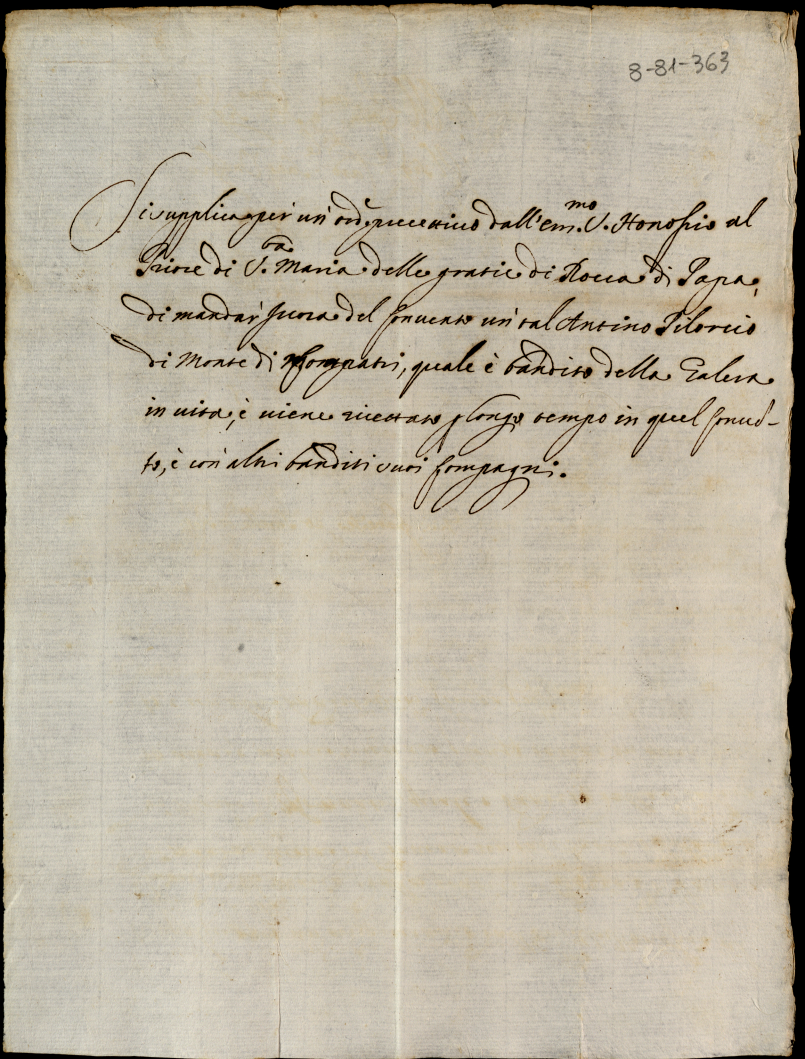 8-81-363
Si supplica per un' ord. precettivo dall'em.mo S. Honofrio al
Priore di S.ta Maria delle gratie di Rocca di Papa,
di mandar' fuora del Convento un' tal Antino Pilorcio
di Monte di Compatri, quale è bandito della Galera
in vita, è viene ricettato p longo tempo in quel Conve-
to, è con altri banditi suoi Compagni.